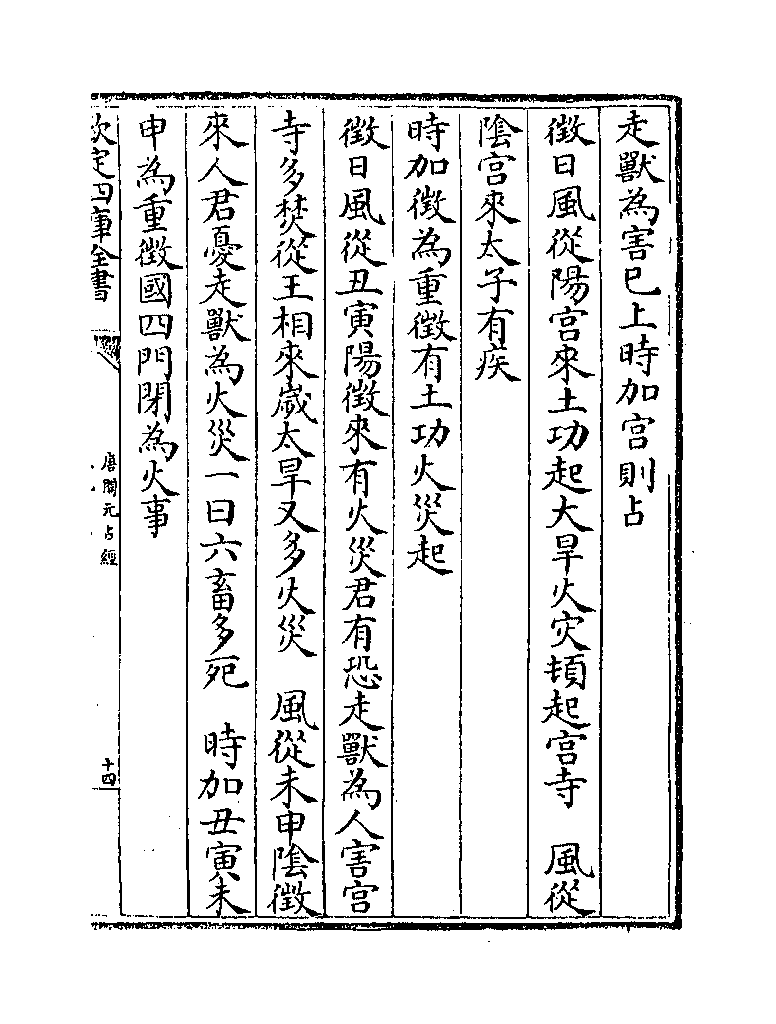 走獸為害巳上時加宫則占
徵日風從陽宫來土功起大旱火灾頓起宫寺　風從
陰宫來太子有疾
時加徵為重徵有土功火災起
徵日風從丑寅陽徵來有火災君有恐走獸為人害宫
寺多焚從王相來歳太旱又多火災　風從未申陰徵
來人君憂走獸為火災一曰六畜多死　時加丑寅未
申為重徵國四門閉為火事
欽定四庫全書
唐開元占經
十四